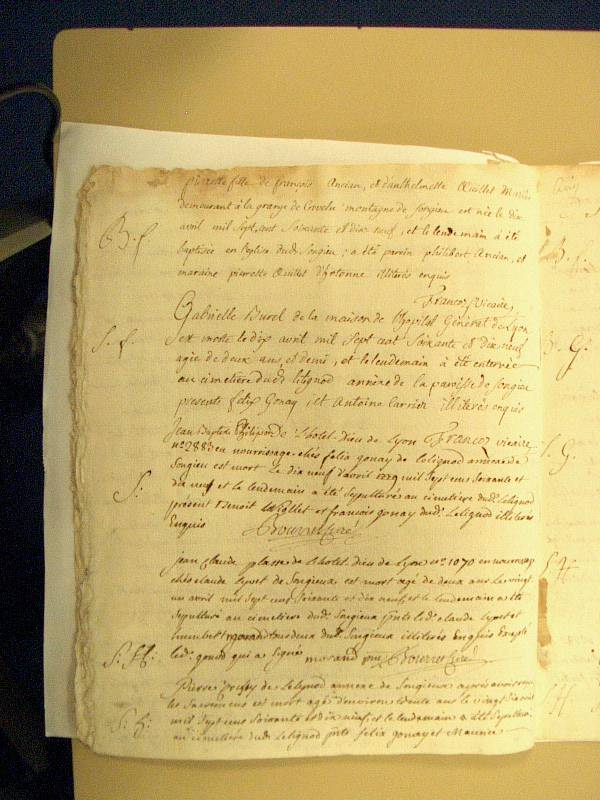 pierrette fille de françois Ancian, et d'anthelmette Œuillet Mariés
demeurant à la grange de Cervelu montagne de songieu est née le dix
avril mil sept cent soixante et dix neuf, et le lendemain à été
B. f.
baptisée en l'église dud. Songieu ; a été parrin philibert Ancian, et
maraine pierrette Œuillet d'hotonne illiterés enquis
Francoz vicaire
Gabrielle Burel de la maison de l'hopital Général de Lyon
S. f.
est morte le dix avril mil sept cent soixante et dix neuf
agée de deux ans et demi, et le lendemain à été enterrée
au cimetière dud. lilignod annèxe de la paroisse de songieu
presents felix Gonay, et Antoine Carrier illiterés enquis
Francoz vicaire
jean Baptiste de l'hotel-Dieu de Lyon
n° 2883 en nourrissage chés felix gonay de lilignod annexe de
Songieu est mort le dix neuf d'avril 1779 mil sept cens soixante et
S.
dix neuf et le lendemain a été sepulturés au cimetière dud. Lelignod
présent Benoit et francois gonay dud. Lelignod illiterés
Enquis Bourret Curé
jean claude de l'hotel dieu de Lyon n° 1070 en nourrisage
chés claude de Songieux est mort agé de deux ans le vingt
un avril mil sept cens soixante et dix neuf et le lendemain a été
Sepulturé au cimetière dud. Songieux pnts led. claude et
humbert morand tous deux dud. Songieux illiterés Enquis Excepté
S. H.
led. qui a signé morand pnt Bourret Curé
Pierre de Lelignod annexe de Songieux après avoir reçu
les Sacremens est mort agé d'environ ans le vingt
S. h.
mil sept cens soixante et dix neuf et le lendemain a été Sepulturé
au cimetière dud. Lelignod pnts felix gonay et Maurice